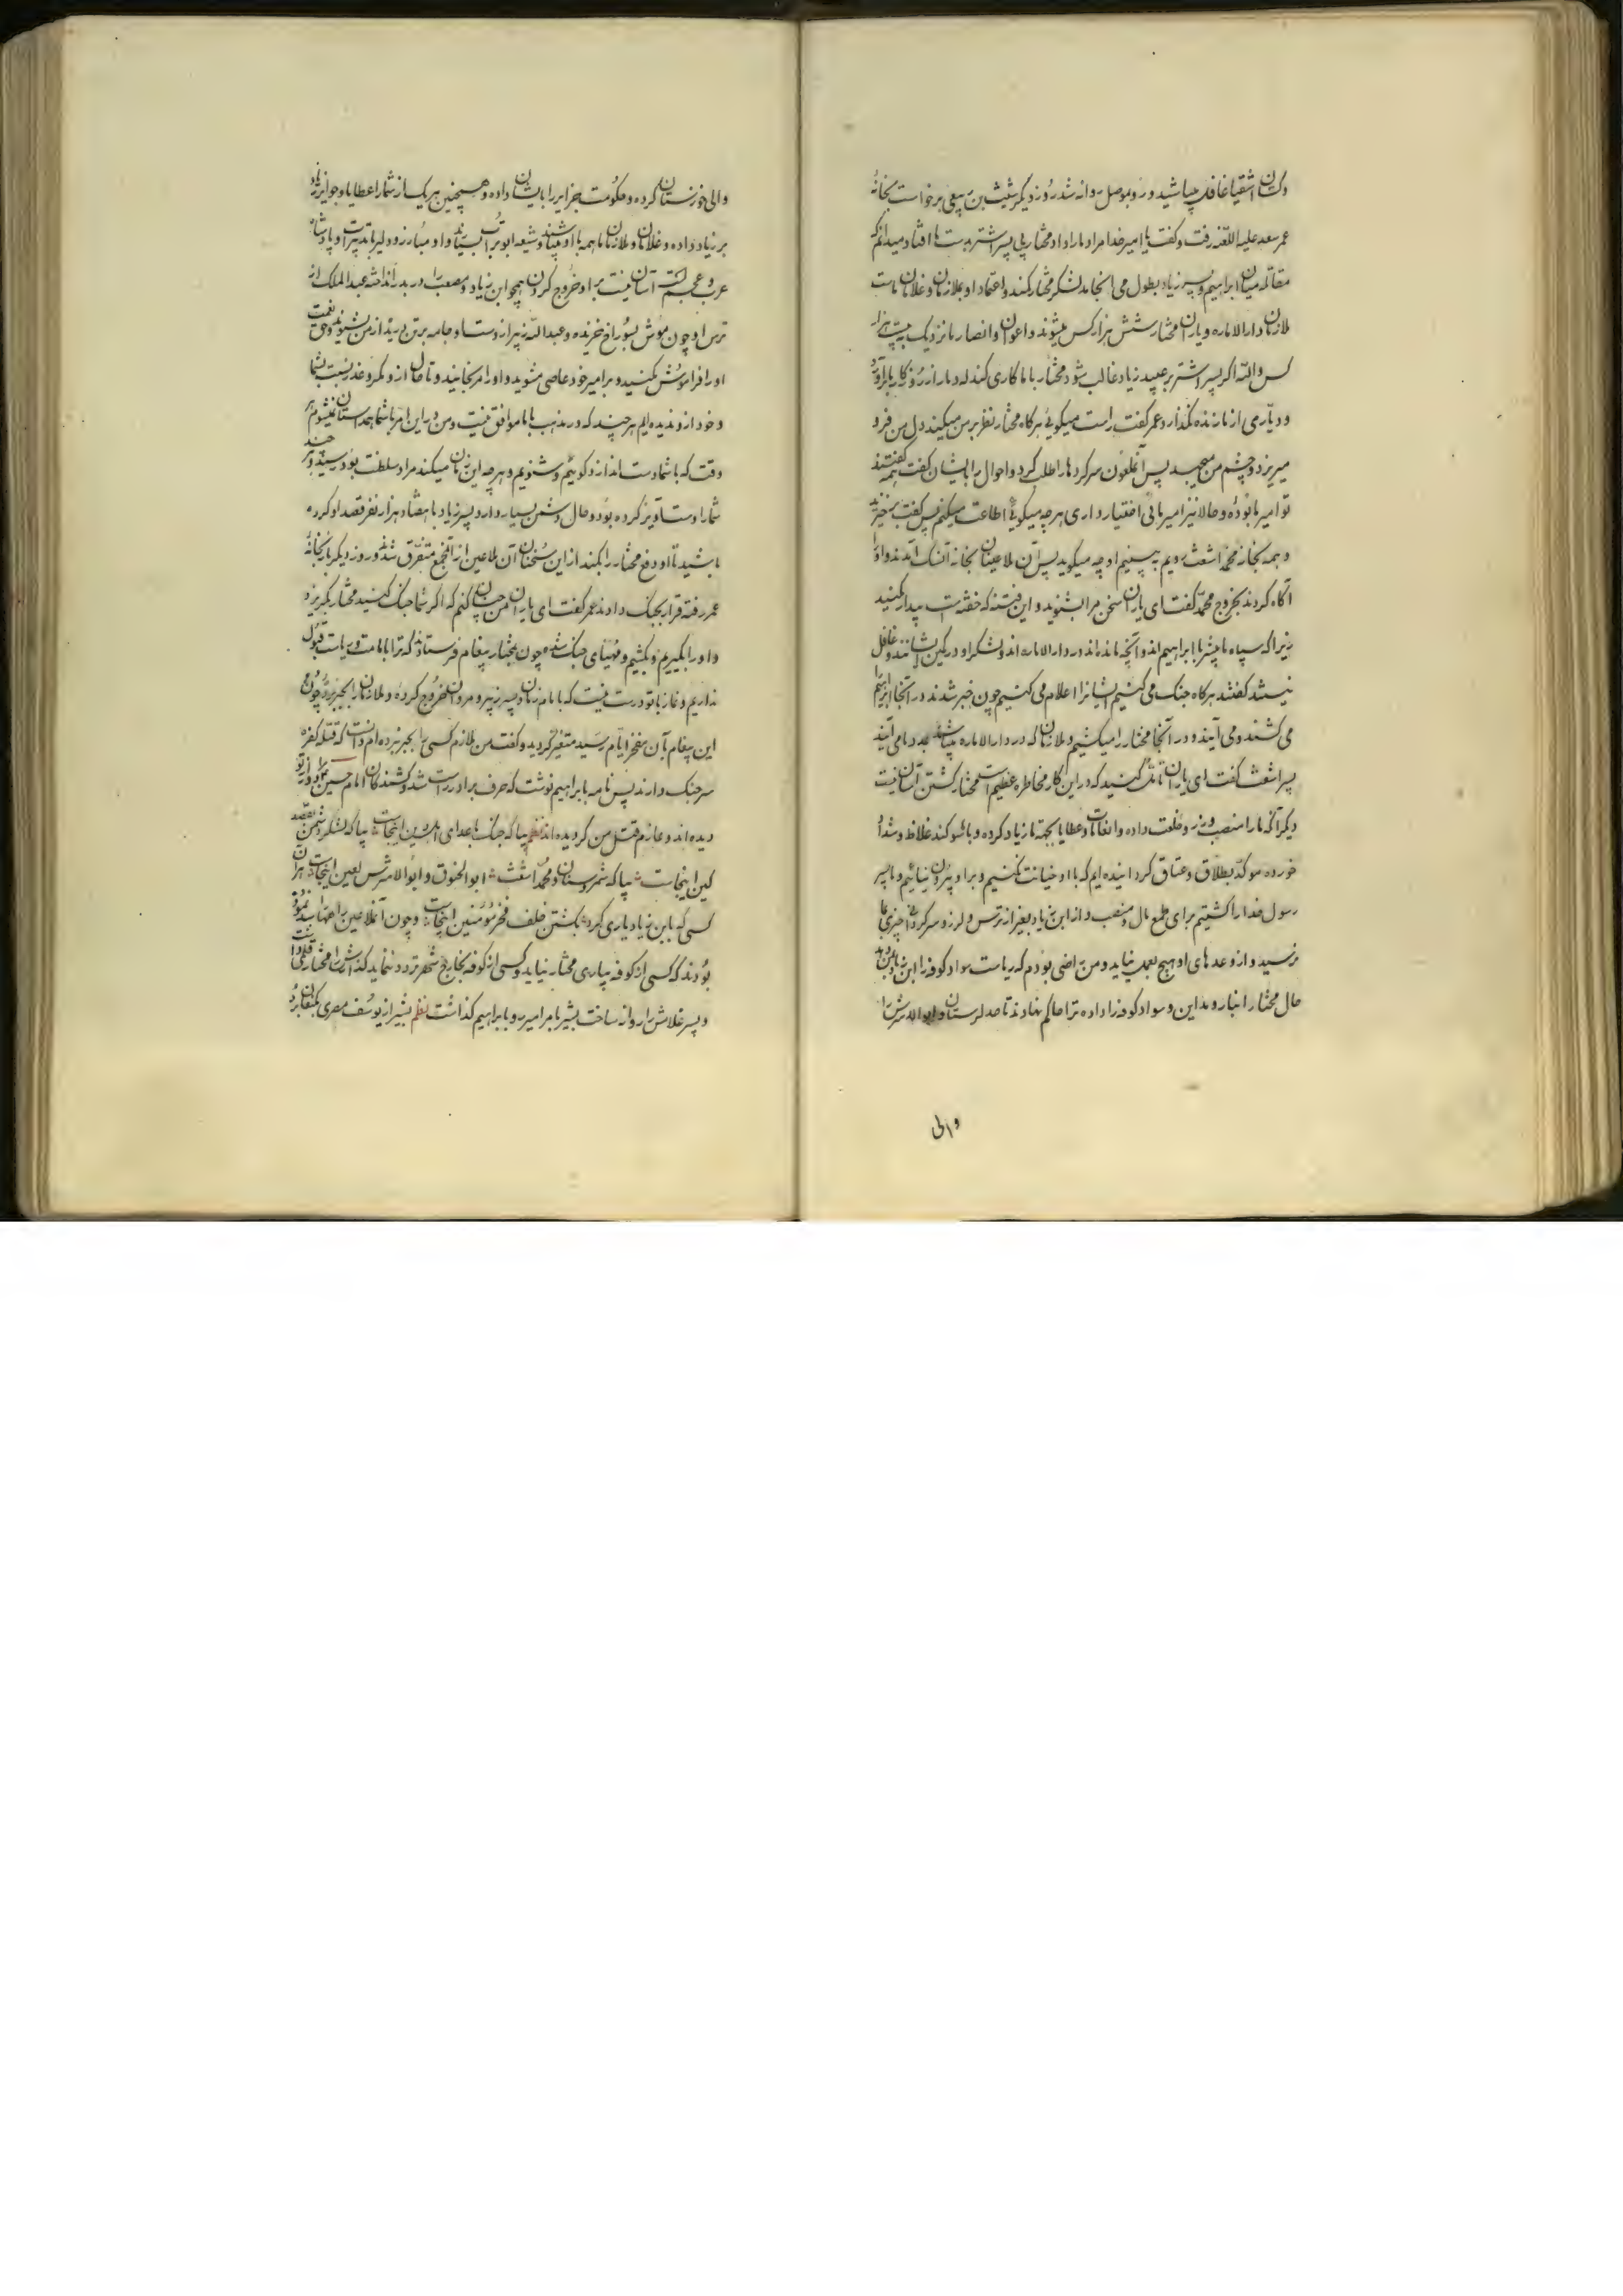 دکان اشقیا غافل مباشید و رو بموصل روانه شد روز دیگر شیث بن ربیعی برخواست بخانهٔ
عمر سعد علیه اللعنه رفت و گفت یا امیر خدا مراد ما را داد مختار بی پسر اشتر بدست ما افتاد میدانم که
مقاتله میان ابراهیم و پسر زیاد بطول می انجامد لشکر مختار کمند و اعتماد او بملازمان و غلامان ماست
ملازمان دار الاماره و یاران مختار شش هزار کس میشوند و اعوان و انصار ما نزدیک به بیست هزار
کس والله اگر پسر اشتر بر عبید زیاد غالب شود مختار با ما کاری کند که دمار از روزگار ما برآورد
و دیاری از ما زنده نگذارد عمر گفت راست میگوئی هرگاه مختار نظر بر من میکند دل من فرو
میریزد و چشم من میجهد پس آنملعون سرکردها را طلب کرد و احوال را بایشان گفت همه گفتند
تو امیر ما بودهٔ و حالا نیز امیر مائی اختیار داری هر چه میگوئی اطاعت میکنیم پس گفت برخیزید
و همه بخانه محمد اشعث رویم به بینیم او چه میگوید پس آن ملاعینان بخانه آن سگ آمدند و او را
آگاه کردند بخروج محمد گفت ای یاران سخن مرا بشنوید و این فتنه که خفته است بیدار مکنید
زیرا که سپاه ما بیشتر با ابراهیم اند و آنچه مانده اند در دار الاماره اند و لشکر او در کمین ما نشسته اند و غافل
نیستند گفتند هرگاه جنگ می کنیم ایشانرا اعلام می کنیم چون خبر شدند در آنجا ابراهیم را
می کشند و می آیند و در آنجا مختار را میکشیم و ملازمان که در دار الاماره میباشند بمدد ما می آیند
پسر اشعث گفت ای یاران تامل کنید که در این کار مخاطره عظیم است مختار کشتن آسان نیست
دیگر آنکه ما را منصب و زر و خلعت داده و انعامات و عطایا بجهة ما زیاد کرده و با او سوگند غلاظ و شداد
خورده موکد بطلاق و عتاق گردانیده ایم که با او خیانت نکنیم و بر او بیرون نیائیم و ما پسر
رسول خدا را کشتیم برای طمع مال و منصب و از ابن زیاد بغیر از ترس و لرز و سرگردانی چیزی بما
نرسید و از وعدهای او هیچ بعمل نیاید و من راضی بودم که ریاست سواد کوفه را ابن زیاد بمن دهد
حال مختار انبار و مداین و سواد کوفه را داده ترا حاکم نهاوند تا حد لرستان و ابو الاشرس را
والی
والی خوزستان کرده و حکومت جزایر را بایشان داده و همچنین هر یک از شما را عطایا و جوایز زیاد
بر زیاد داده و غلامان و ملازمان ما همه با او میباشند و شیعه ابو تراب بسیارند و او مبارز و دلیر با تدبیر است و پادشاه
عرب و عجم است آسان نیست بر او خروج کردن همچو ابن زیاد و مصعب را در بدر انداخته عبد الملک از
ترس او چون موش بسوراخ خزیده و عبد الله زبیر از دست او جامه بر تن می درد از من بشنوید و حق نعمت
او را فراموش مکنید و بر امیر خود عاصی مشوید و او را مرنجانید و تا حال از و مکر و غدر نسبت بشما
و خود از و ندیده ایم هر چند که در مذهب با ما موافق نیست و من در این امر با شما همداستان نمیشوم هر
وقت که با شما دست اندازد گوئیم و شنویم و هر چه این زمان میکند مراد سلطنت بود رسیده هر چند
شما را دست آویز کرده بود و حال دشمن بسیار دارد و پسر زیاد با هشتاد هزار نفر قصد او کرده
باشید تا او دفع مختار را بکند از این سخنان آن ملاعین از آنجمع متفرق شدند و روز دیگر باز بخانهٔ
عمر رفته قرار بجنگ دادند عمر گفت ای یاران من چنان کنم که اگر شما جنگ کنید مختار بگریزد
و او را بگیریم و بکشیم و مهیای جنگ شدند چون بمختار پیغام فرستادند که ترا بامامت و ریاست قبول
نداریم و نماز با تو درست نیست که با امام زمان و پسر زبیر و مروان خروج کرده و ملازمان را بجبر برده چون
این پیغام بآن مفخر ایام رسید متغیر گردید و گفت من ملازم کسی را بجبر نبرده ام دانست که قتله کفره
سر جنگ دارند پس نامه بابراهیم نوشت که حرف برادر راست شد و کشندگان امام حسین مرا دور از تو
دیده اند و عازم قتل من گردیده اند نظم بیا که جنگ باعدای اهل دین اینجاست بیا که لشکر دشمن بقصد
کین اینجاست بیا که شمر و سنان و محمد اشعث ابو الخنوق و ابو الاشرس لعین اینجاست هر آن
کسی که بابن زیاد یاری کرد بکشتن خلف فخر مؤمنین اینجاست و چون آنملاعین راهها را بسته
بودند که کسی از کوفه بیاری مختار نیاید و کسی از کوفه بخارج شهر تردد ننماید
و پسر غلامش را روانه ساخت بشیر نام را امیر رو بابراهیم گذاشت نظم بشیر از یوسف مصری بکنعان برد